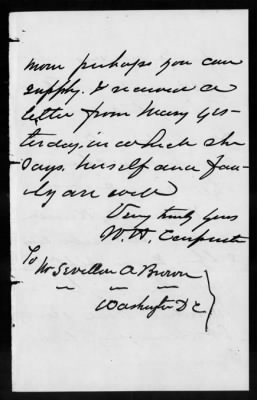 mom perhaps you can
supply. I received a
letter from Mary yes-
terday, in which she
says, herself and fam-
ily are well
Very truly yours
W. W. Carpenter
To
Mr Sevellon A Brown
Washington D C